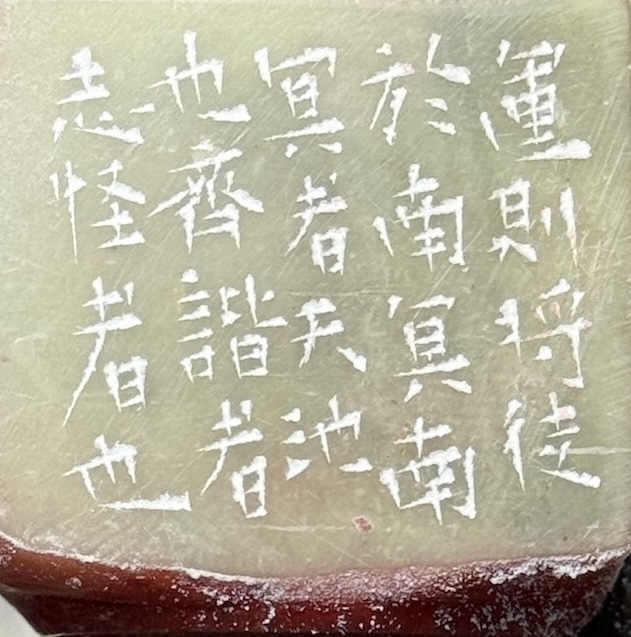 運則將徙
於南冥南
冥者天池
也齊諧者
志怪者也